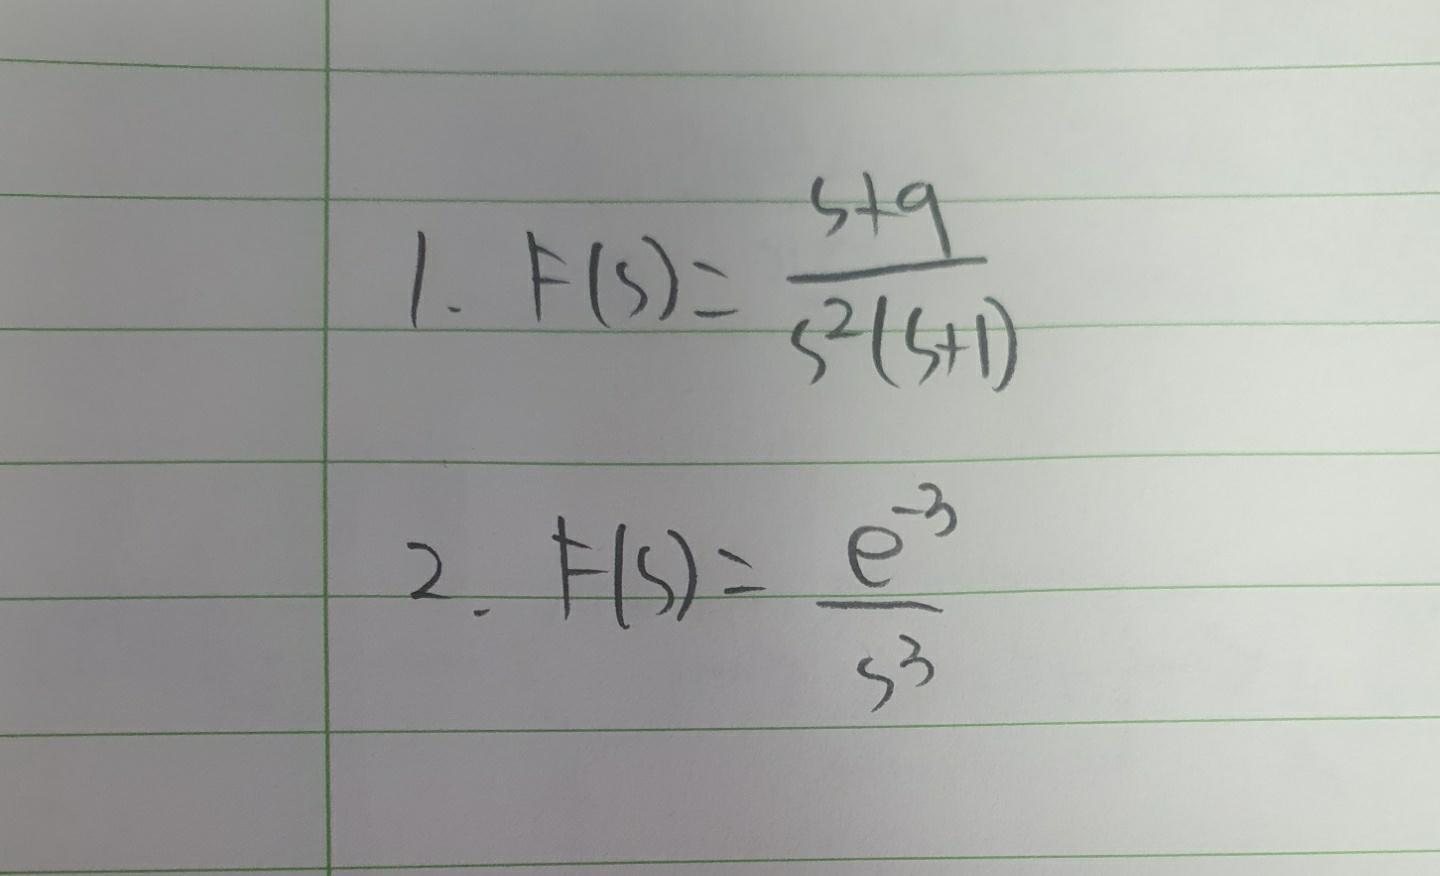 1. F(s)= \frac{s+9}{s^2(s+1)}
2. F(s)= \frac{e^{-3}}{s^3}